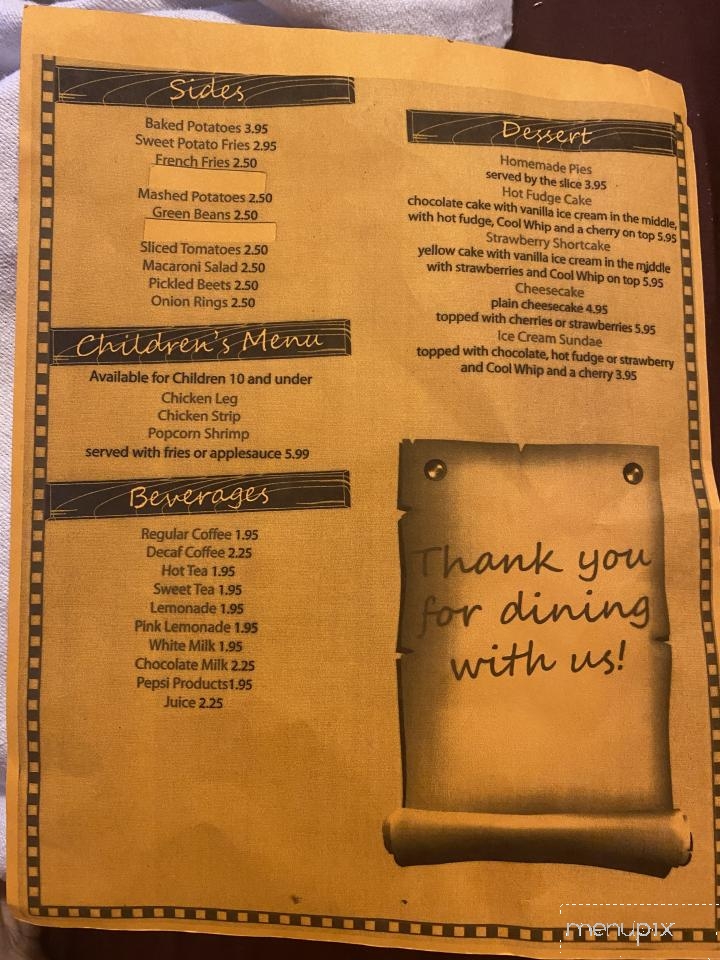 Sides
Baked Potatoes 3.95
Sweet Potato Fries 2.95
French Fries 2.50
Mashed Potatoes 2.50
Green Beans 2.50
Sliced Tomatoes 2.50
Macaroni Salad 2.50
Pickled Beets 2.50
Onion Rings 2.50
Children's Menu
Available for Children 10 and under
Chicken Leg
Chicken Strip
Popcorn Shrimp
served with fries or applesauce 5.99
Beverages
Regular Coffee 1.95
Decaf Coffee 2.25
Hot Tea 1.95
Sweet Tea 1.95
Lemonade 1.95
Pink Lemonade 1.95
White Milk 1.95
Chocolate Milk 2.25
Pepsi Products1.95
Juice 2.25
Dessert
Homemade Pies
served by the slice 3.95
Hot Fudge Cake
chocolate cake with vanilla ice cream in the middle,
with hot fudge, Cool Whip and a cherry on top 5.95
Strawberry Shortcake
yellow cake with vanilla ice cream in the middle
with strawberries and Cool Whip on top 5.95
Cheesecake
plain cheesecake 4.95
topped with cherries or strawberries 5.95
Ice Cream Sundae
topped with chocolate, hot fudge or strawberry
and Cool Whip and a cherry 3.95
Thank you
for dining
with us!
menupix